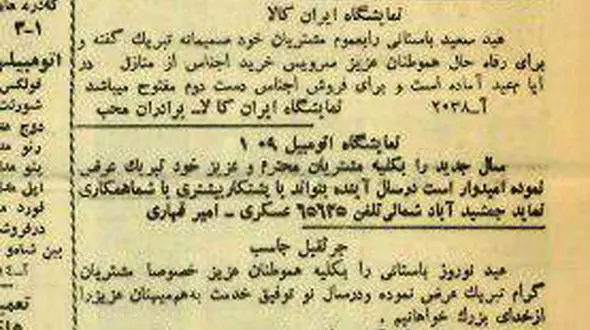 نمایشگاه ایران کالا
عید سعید باستانی رابعموم مشتریان خود صمیمانه تبریک گفته و
برای رفاه حال هموطنان عزیز سرویس خرید اجناس از منازل در
ایام عید آماده است و برای فروش اجناس دست دوم مفتوح میباشد
آ-۲۰۳۸ نمایشگاه ایران کالا- برادران محب
نمایشگاه اتومبیل ۱۰۹
سال جدید را بکلیه مشتریان محترم و عزیز خود تبریک عرض
نموده امیدوار است درسال آینده بتواند با پشتکاربیشتری با شماهمکاری
نماید جمشید آباد شمالی تلفن ۶۵۶۳۵ عسکری - امیر قهاری
جرثقیل جاسب
عید نوروز باستانی را بکلیه هموطنان عزیز خصوصا مشتریان
گرام تبریک عرض نموده ودرسال نو توفیق خدمت به‌هم‌میهنان عزیزرا
ازخدای بزرگ خواهانیم .
۳-۱
اتومبیلهـ
فولکس
شورلت
دوج
رنو
بنو
اپل
فورد
درفروشـ
بین شاهو
تعمیـ